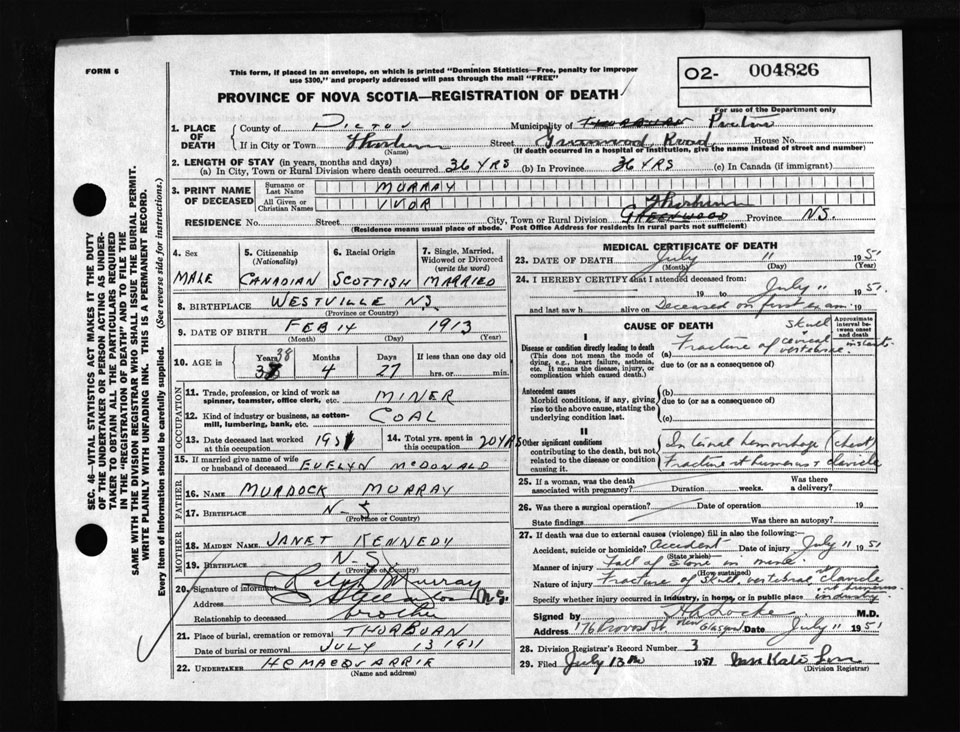 FORM 6
This form, if placed in an envelope, on which is printed "Dominion Statistics—Free, penalty for improper
use $300," and properly addressed will pass through the mail "FREE"
PROVINCE OF NOVA SCOTIA—REGISTRATION OF DEATH
O2- 004826
For use of the Department only
SEC. 46—VITAL STATISTICS ACT MAKES IT THE DUTY
OF THE UNDERTAKER OR PERSON ACTING AS UNDER-
TAKER TO OBTAIN ALL THE PARTICULARS REQUIRED
IN THE "REGISTRATION OF DEATH" AND TO FILE THE
SAME WITH THE DIVISION REGISTRAR WHO SHALL ISSUE THE BURIAL PERMIT.
WRITE PLAINLY WITH UNFADING INK. THIS IS A PERMANENT RECORD.
Every item of information should be carefully supplied. (See reverse side for instructions.)
1. PLACE OF DEATH
County of Pictou Municipality of Pictou
If in City or Town Thorburn Street Greenwood Road House No.
(Name) (If death occurred in a hospital or institution, give the name instead of street and number)
2. LENGTH OF STAY (in years, months and days)
(a) In City, Town or Rural Division where death occurred 36 YRS (b) In Province 36 YRS (c) In Canada (if immigrant)
3. PRINT NAME OF DECEASED
Surname or Last Name MURRAY
All Given or Christian Names IVOR
RESIDENCE No. Street City, Town or Rural Division GREENWOOD Thorburn Province N.S.
(Residence means usual place of abode. Post Office Address for residents in rural parts not sufficient)
4. Sex MALE
5. Citizenship (Nationality) CANADIAN
6. Racial Origin SCOTTISH
7. Single, Married, Widowed or Divorced (write the word) MARRIED
8. BIRTHPLACE WESTVILLE NS
(Province or Country)
9. DATE OF BIRTH FEB 14 1913
(Month) (Day) (Year)
10. AGE in Years 38 Months 4 Days 27 If less than one day old hrs. or min.
OCCUPATION
11. Trade, profession, or kind of work as spinner, teamster, office clerk, etc. MINER
12. Kind of industry or business, as cotton-mill, lumbering, bank, etc. COAL
13. Date deceased last worked at this occupation 1951 14. Total yrs. spent in this occupation 20 YRS
15. If married give name of wife or husband of deceased EVELYN McDONALD
FATHER
16. NAME MURDOCK MURRAY
17. BIRTHPLACE N-S.
(Province or Country)
MOTHER
18. MAIDEN NAME JANET KENNEDY
19. BIRTHPLACE N.S.
(Province or Country)
20. Signature of informant Ralph Murray
Address Stellarton N.S.
Relationship to deceased brother
21. Place of burial, cremation or removal THORBURN
Date of burial or removal JULY 13 1951
22. UNDERTAKER H C MACQUARRIE
MEDICAL CERTIFICATE OF DEATH
23. DATE OF DEATH July 11 1951
(Month) (Day) (Year)
24. I HEREBY CERTIFY that I attended deceased from:
19 to July 11 1951.
and last saw h alive on Deceased on first exam 19
CAUSE OF DEATH
Approximate interval between onset and death
I
Disease or condition directly leading to death
(This does not mean the mode of dying, e.g., heart failure, asthenia, etc. It means the disease, injury, or complication which caused death.)
(a) Fracture of skull cervical vertebrae instant
due to (or as a consequence of)
Antecedent causes
Morbid conditions, if any, giving rise to the above cause, stating the underlying condition last.
(b)
due to (or as a consequence of)
(c)
II
Other significant conditions contributing to the death, but not related to the disease or condition causing it.
Internal hemorrhage (chest)
Fracture rt humerus & clavicle
25. If a woman, was the death associated with pregnancy? Duration weeks. Was there a delivery?
26. Was there a surgical operation? Date of operation 19
State findings Was there an autopsy?
27. If death was due to external causes (violence) fill in also the following:
Accident, suicide or homicide? accident Date of injury July 11 1951
(State which)
Manner of injury Fall of stone in mine
(How sustained)
Nature of injury Fracture of skull vertebrae clavicle rt humerus
Specify whether injury occurred in industry, in home, or in public place industry
Signed by H A Locke M.D.
Address 176 Provost St New Glasgow Date July 11 1951
28. Division Registrar's Record Number 3
29. Filed July 13th 1951
(Division Registrar)